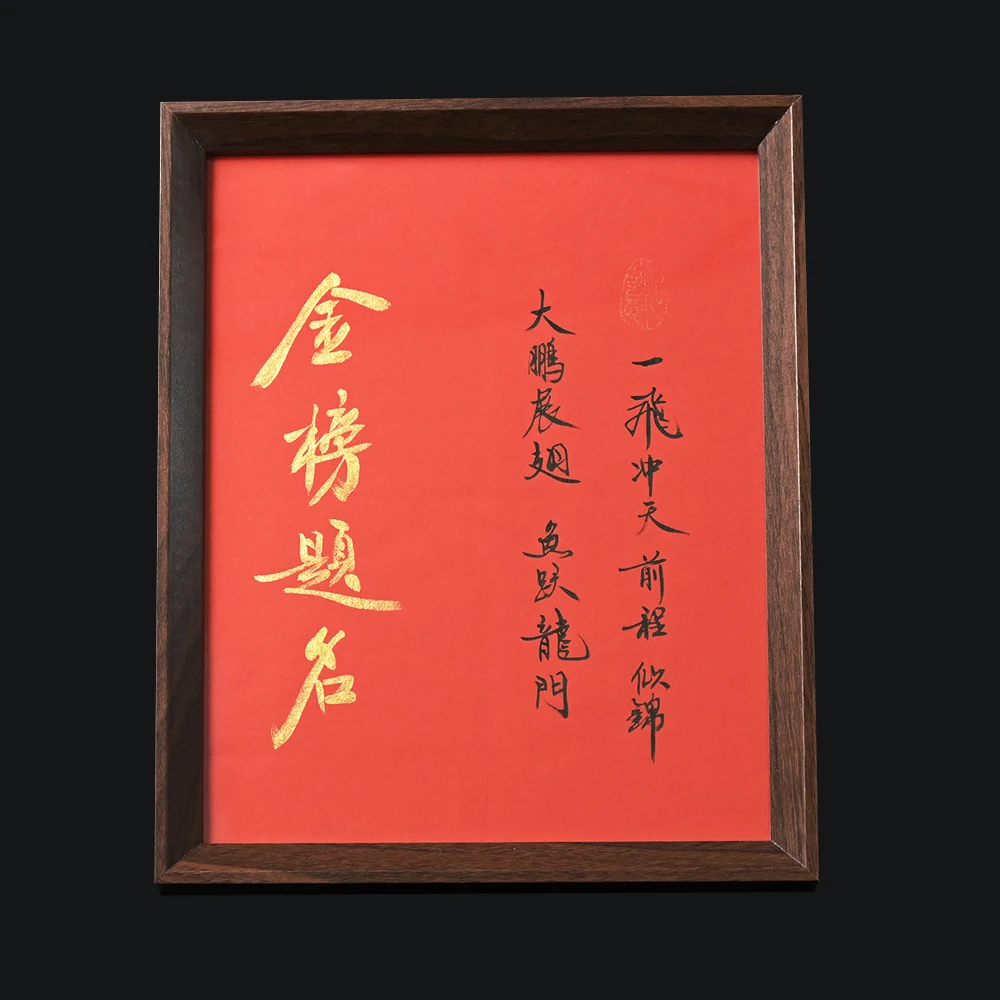 一飛冲天 前程似錦
大鹏展翅 鱼跃龍門
金榜題名